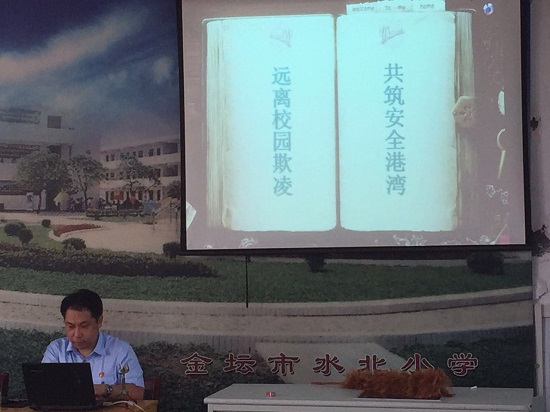 welcome to my home
远离校园欺凌
共筑安全港湾
金坛市水北小学